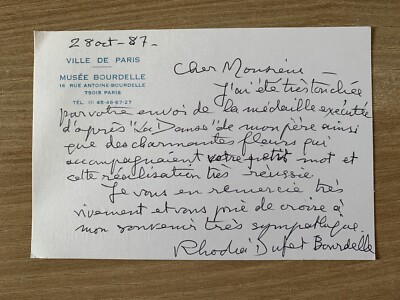 2 8 oct - 87 -
VILLE DE PARIS
MUSÉE BOURDELLE
16 RUE ANTOINE-BOURDELLE
75015 PARIS
TÉL. (1) 45-48-67-27
Cher Monsieur -
J'ai été très touchée
par votre envoi de la médaille exécutée
d'après "La Danse" de mon père ainsi
que des charmantes fleurs qui
accompagnaient votre petit mot et
cette réalisation très réussie.
Je vous en remercie très
vivement et vous prie de croire à
mon souvenir très sympathique.
Rhodia Dufet Bourdelle